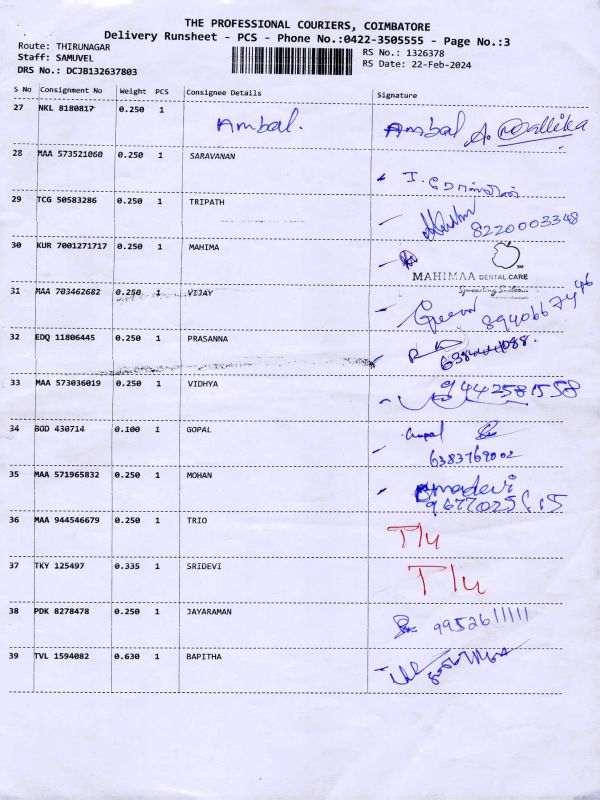 THE PROFESSIONAL COURIERS, COIMBATORE
Delivery Runsheet - PCS - Phone No.:0422-3505555 - Page No.:3
Route: THIRUNAGAR
Staff: SAMUVEL
DRS No.: DCJB132637803
RS No.: 1326378
RS Date: 22-Feb-2024
S No Consignment No Weight PCS Consignee Details Signature
27 NKL 8180817 0.250 1 Ambal. Ambal A. Mallika
28 MAA 573521060 0.250 1 SARAVANAN
29 TCG 50583286 0.250 1 TRIPATH 8220003348
30 KUR 7001271717 0.250 1 MAHIMA
MAHIMAA DENTAL CARE
Spreading Smiles...
31 MAA 703462682 0.250 1 VIJAY 8940667446
32 EDQ 11806445 0.250 1 PRASANNA
33 MAA 573036019 0.250 1 VIDHYA 9442581558
34 BOD 430714 0.100 1 GOPAL Gopal
6383769002
35 MAA 571965832 0.250 1 MOHAN Umadevi
36 MAA 944546679 0.250 1 TRIO T/u
37 TKY 125497 0.335 1 SRIDEVI T/u
38 PDK 8278478 0.250 1 JAYARAMAN 9952611111
39 TVL 1594082 0.630 1 BAPITHA